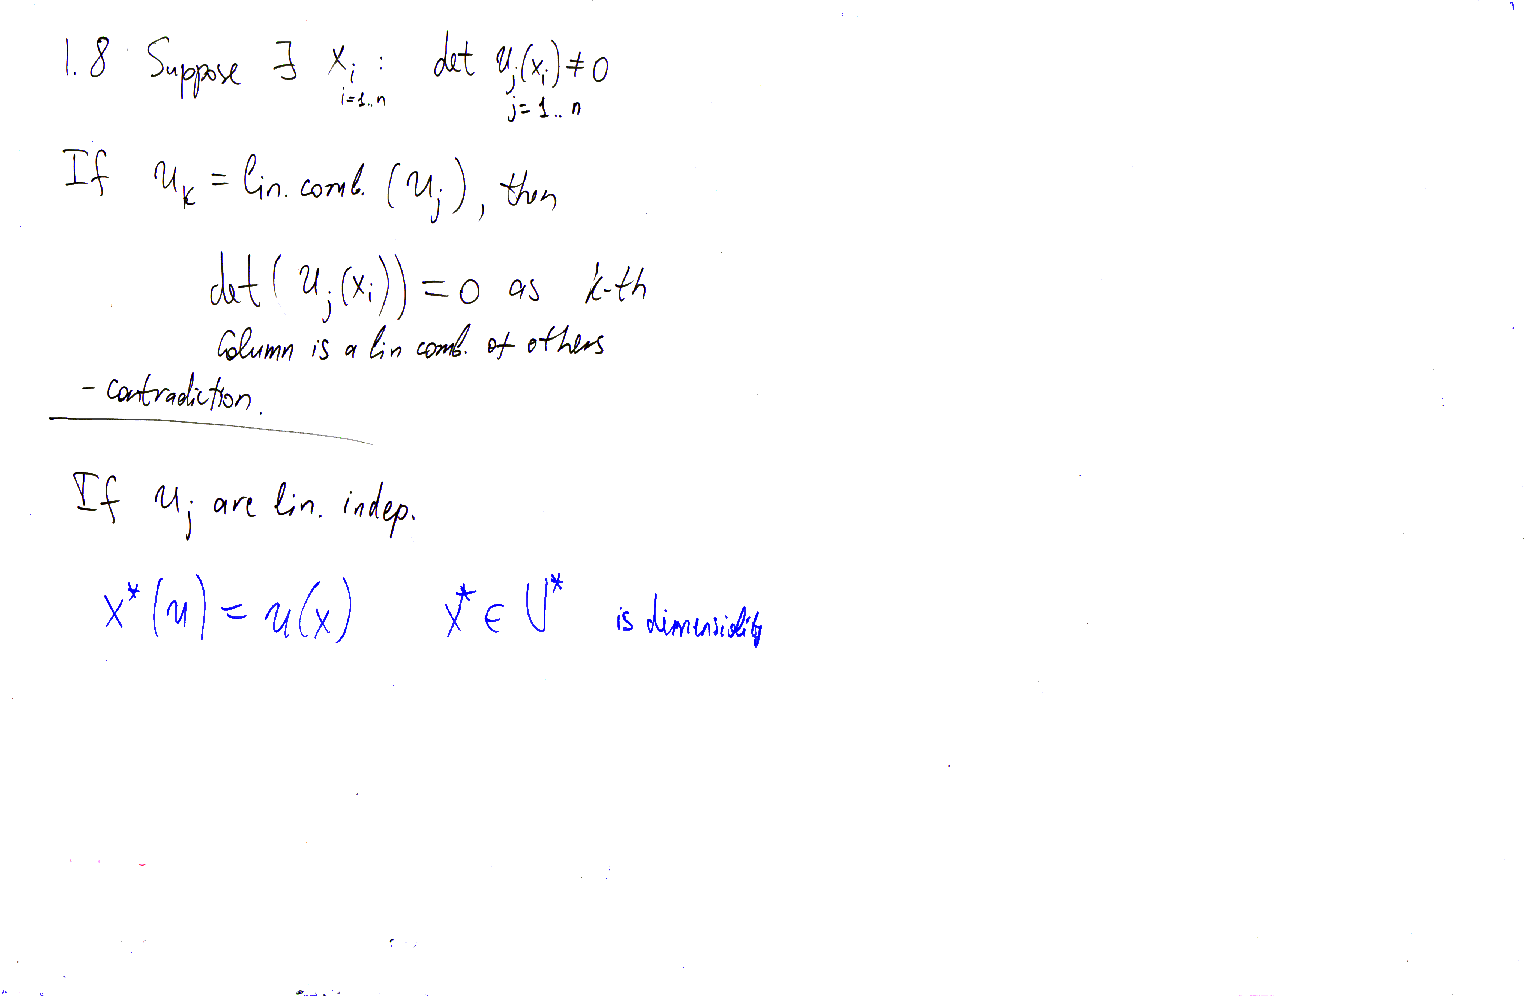 1.8 Suppose ∃ x_i : det u_j(x_i) ≠ 0
i=1..n j=1..n
If u_k = lin. comb. (u_j), then
det(u_j(x_i)) = 0 as k-th
column is a lin comb. of others
- contradiction.
If u_j are lin. indep.
x*(u) = u(x) x* ∈ U* is